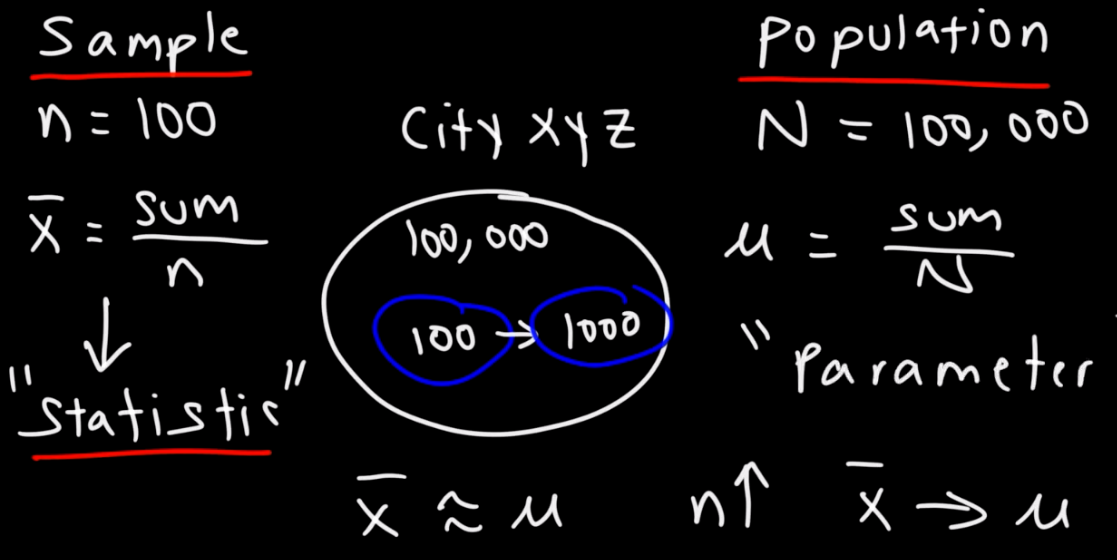 Sample
n = 100
x̄ = sum/n
"Statistic"
City XYZ
100,000
100 → 1000
Population
N = 100,000
μ = sum/N
"Parameter
x̄ ≈ μ
n↑ x̄ → μ